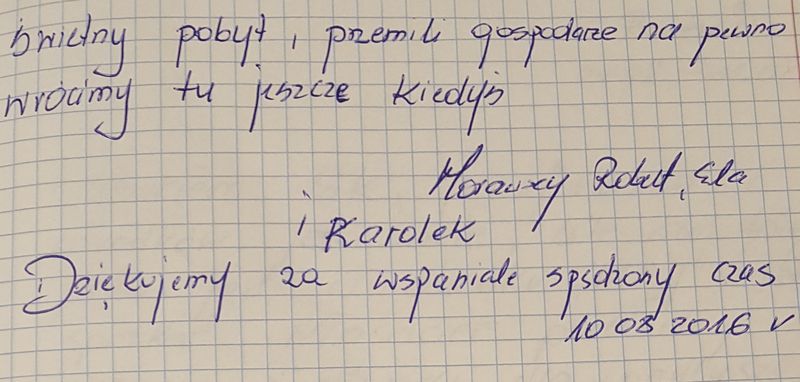 świetny pobyt, przemili gospodarze na pewno
wrócimy tu jeszcze kiedyś
Morawscy Robert, Ela
i Karolek
Dziękujemy za wspaniale spędzony czas
10 08 2016 r